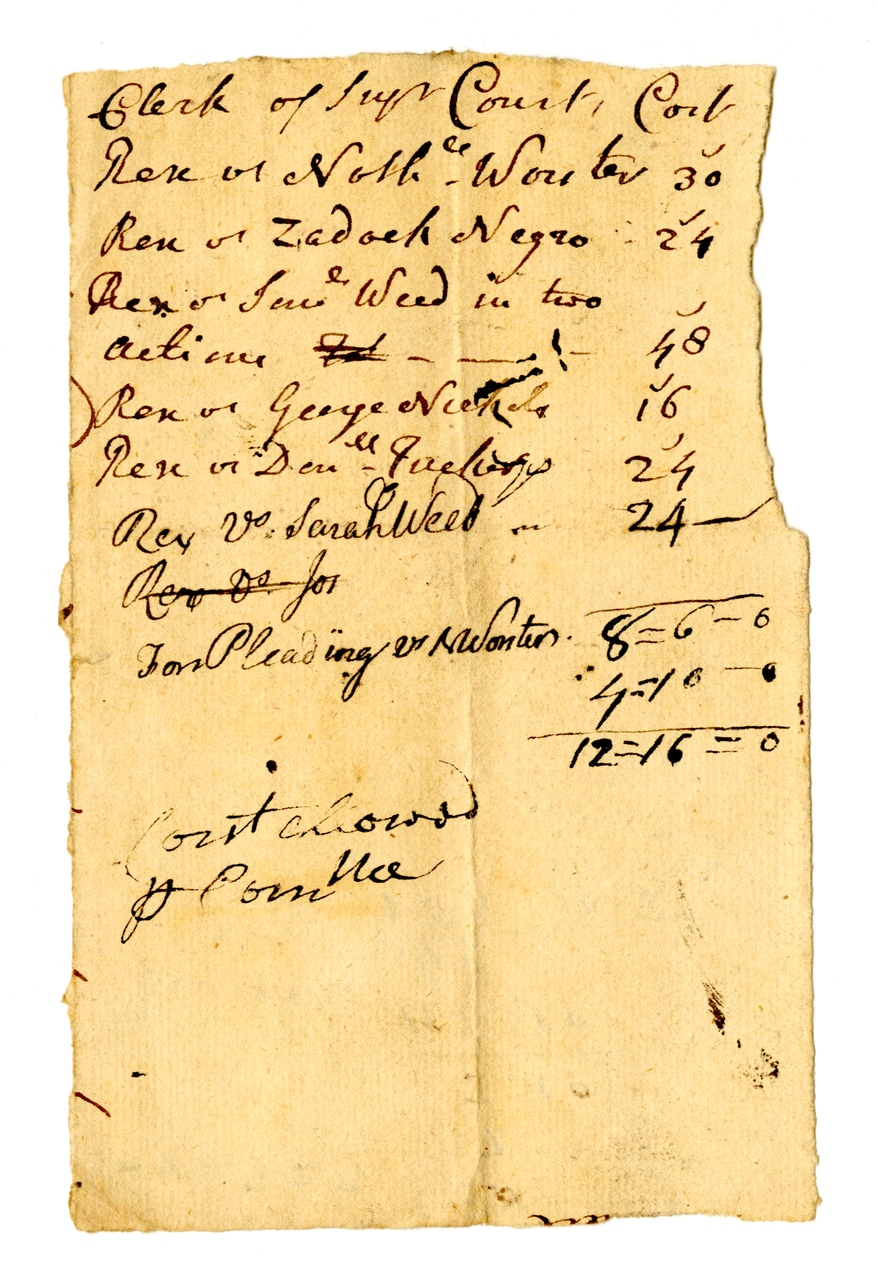 Clerk of Supr Court, Cost
Rex vs Nathll Wooster 30
Rex vs Zadock Negro 24
Rex vs Saml Weed in two
actions 48
Rex vs George Nichols 16
Rex vs Danll 24
Rex Vs. Sarah Weed 24
Rex Vs. Jos
8=6-0
For Pleading vs N Wooster. 4=10-0
12=16=0
Cost allowed
Comttee